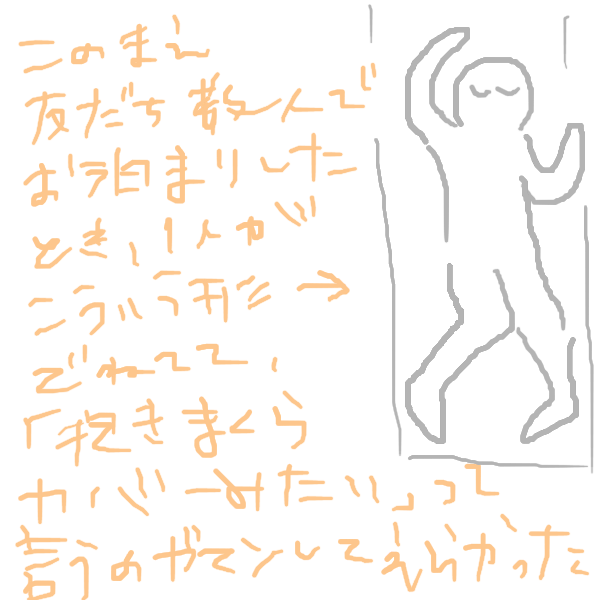 このまえ
友だち数人で
お泊まりした
とき、1人が
こういう形→
でねてて、
「抱きまくら
カバーみたい」って
言うのガマンしてえらかった